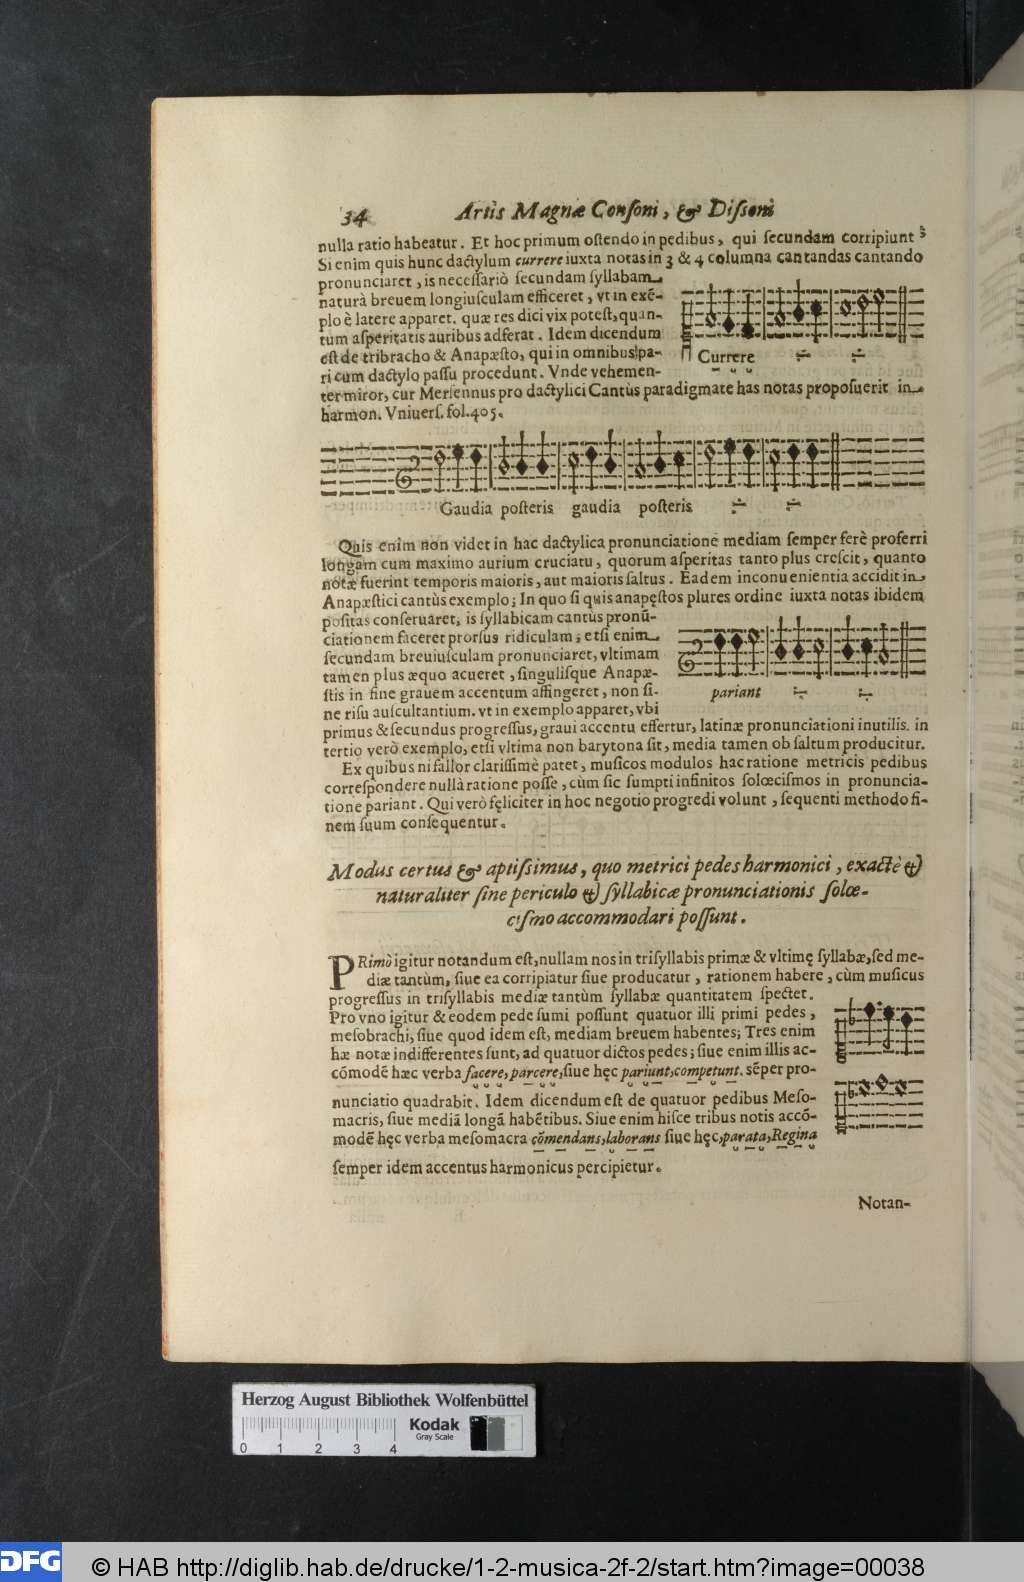 34 Artis Magnæ Conſoni, & Diſſoni
nulla ratio habeatur. Et hoc primum oſtendo in pedibus, qui ſecundam corripiunt
Si enim quis hunc dactylum currere iuxta notas in 3 & 4 columna cantandas cantando
pronunciaret, is neceſſariò ſecundam ſyllabam
naturà breuem longiuſculam efficeret, vt in exẽ-
plo è latere apparet. quæ res dici vix poteſt, quan-
tum aſperitatis auribus adferat. Idem dicendum
eſt de tribracho & Anapæſto, qui in omnibus pa-
ri cum dactylo paſſu procedunt. Vnde vehemen-
Currere
ter miror, cur Merſennus pro dactylici Cantùs paradigmate has notas propoſuerit in
harmon. Vniuerſ. fol. 405.
Gaudia poſteris gaudia poſteris
Quis enim non videt in hac dactylica pronunciatione mediam ſemper ferè proferri
longam cum maximo aurium cruciatu, quorum aſperitas tanto plus creſcit, quanto
notæ fuerint temporis maioris, aut maioris ſaltus. Eadem inconuenientia accidit in
Anapæſtici cantùs exemplo; In quo ſi quis anapęſtos plures ordine iuxta notas ibidem
poſitas conſeruaret, is ſyllabicam cantus pronũ-
ciationem faceret prorſus ridiculam; etſi enim
ſecundam breuiuſculam pronunciaret, vltimam
tamen plus æquo acueret, ſinguliſque Anapæ-
ſtis in fine grauem accentum affingeret, non ſi-
ne riſu auſcultantium. vt in exemplo apparet, vbi
pariant
primus & ſecundus progreſſus, graui accentu effertur, latinæ pronunciationi inutilis. in
tertio verò exemplo, etſi vltima non barytona ſit, media tamen ob ſaltum producitur.
Ex quibus ni fallor clariſſimè patet, muſicos modulos hac ratione metricis pedibus
correſpondere nulla ratione poſſe, cùm ſic ſumpti infinitos ſolœciſmos in pronuncia-
tione pariant. Qui verò fęliciter in hoc negotio progredi volunt, ſequenti methodo fi-
nem ſuum conſequentur.
Modus certus & aptiſſimus, quo metrici pedes harmonici, exactè &
naturaliter ſine periculo & ſyllabicæ pronunciationis ſolœ-
ciſmo accommodari poſſunt.
PRimò igitur notandum eſt, nullam nos in triſyllabis primæ & vltimę ſyllabæ, ſed me-
diæ tantùm, ſiue ea corripiatur ſiue producatur, rationem habere, cùm muſicus
progreſſus in triſyllabis mediæ tantùm ſyllabæ quantitatem ſpectet.
Pro vno igitur & eodem pede ſumi poſſunt quatuor illi primi pedes,
meſobrachi, ſiue quod idem eſt, mediam breuem habentes; Tres enim
hæ notæ indifferentes ſunt, ad quatuor dictos pedes; ſiue enim illis ac-
cõmodẽ hæc verba facere, parcere, ſiue hęc pariunt, competunt. sẽper pro-
nunciatio quadrabit. Idem dicendum eſt de quatuor pedibus Meſo-
macris, ſiue mediã longã habẽtibus. Siue enim hiſce tribus notis accõ-
modẽ hęc verba meſomacra cõmendans, laborans ſiue hęc, parata, Regina
ſemper idem accentus harmonicus percipietur.
Notan-
Herzog August Bibliothek Wolfenbüttel
Kodak
Gray Scale
0 1 2 3 4
DFG © HAB http://diglib.hab.de/drucke/1-2-musica-2f-2/start.htm?image=00038